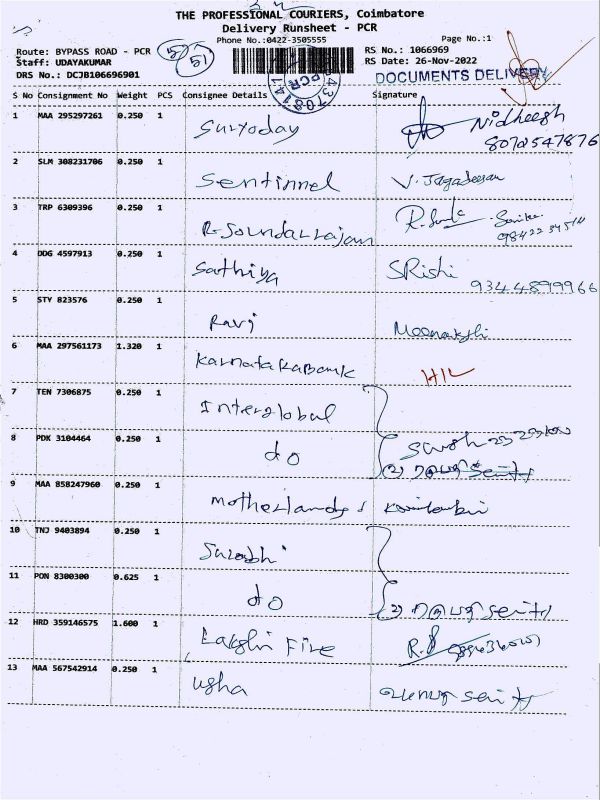 THE PROFESSIONAL COURIERS, Coimbatore
Delivery Runsheet - PCR
Phone No.:0422-3505555
Page No.:1
Route: BYPASS ROAD - PCR
57
RS No.: 1066969
Staff: UDAYAKUMAR
RS Date: 26-Nov-2022
DRS No.: DCJB106696901
DOCUMENTS DELIVERY
PCR
S No Consignment No Weight PCS Consignee Details Signature
1 MAA 295297261 0.250 1 Suryoday Nidheesh
8070547876
2 SLM 308231706 0.250 1 Sentinnel V. Jagadeesan
3 TRP 6309396 0.250 1 R-Soundarrajan
4 DDG 4597913 0.250 1 Sathiya SRishi
9344899966
5 STY 823576 0.250 1 Ravi Meenakshi
6 MAA 297561173 1.320 1 Karnataka Bank
7 TEN 7306875 0.250 1 Interglobal
8 PDK 3104464 0.250 1 do
9 MAA 858247960 0.250 1
10 TNJ 9403894 0.250 1 Surabhi
11 PON 8300300 0.625 1 do
12 HRD 359146575 1.600 1 Lakshi Fire
13 MAA 567542914 0.250 1 usha